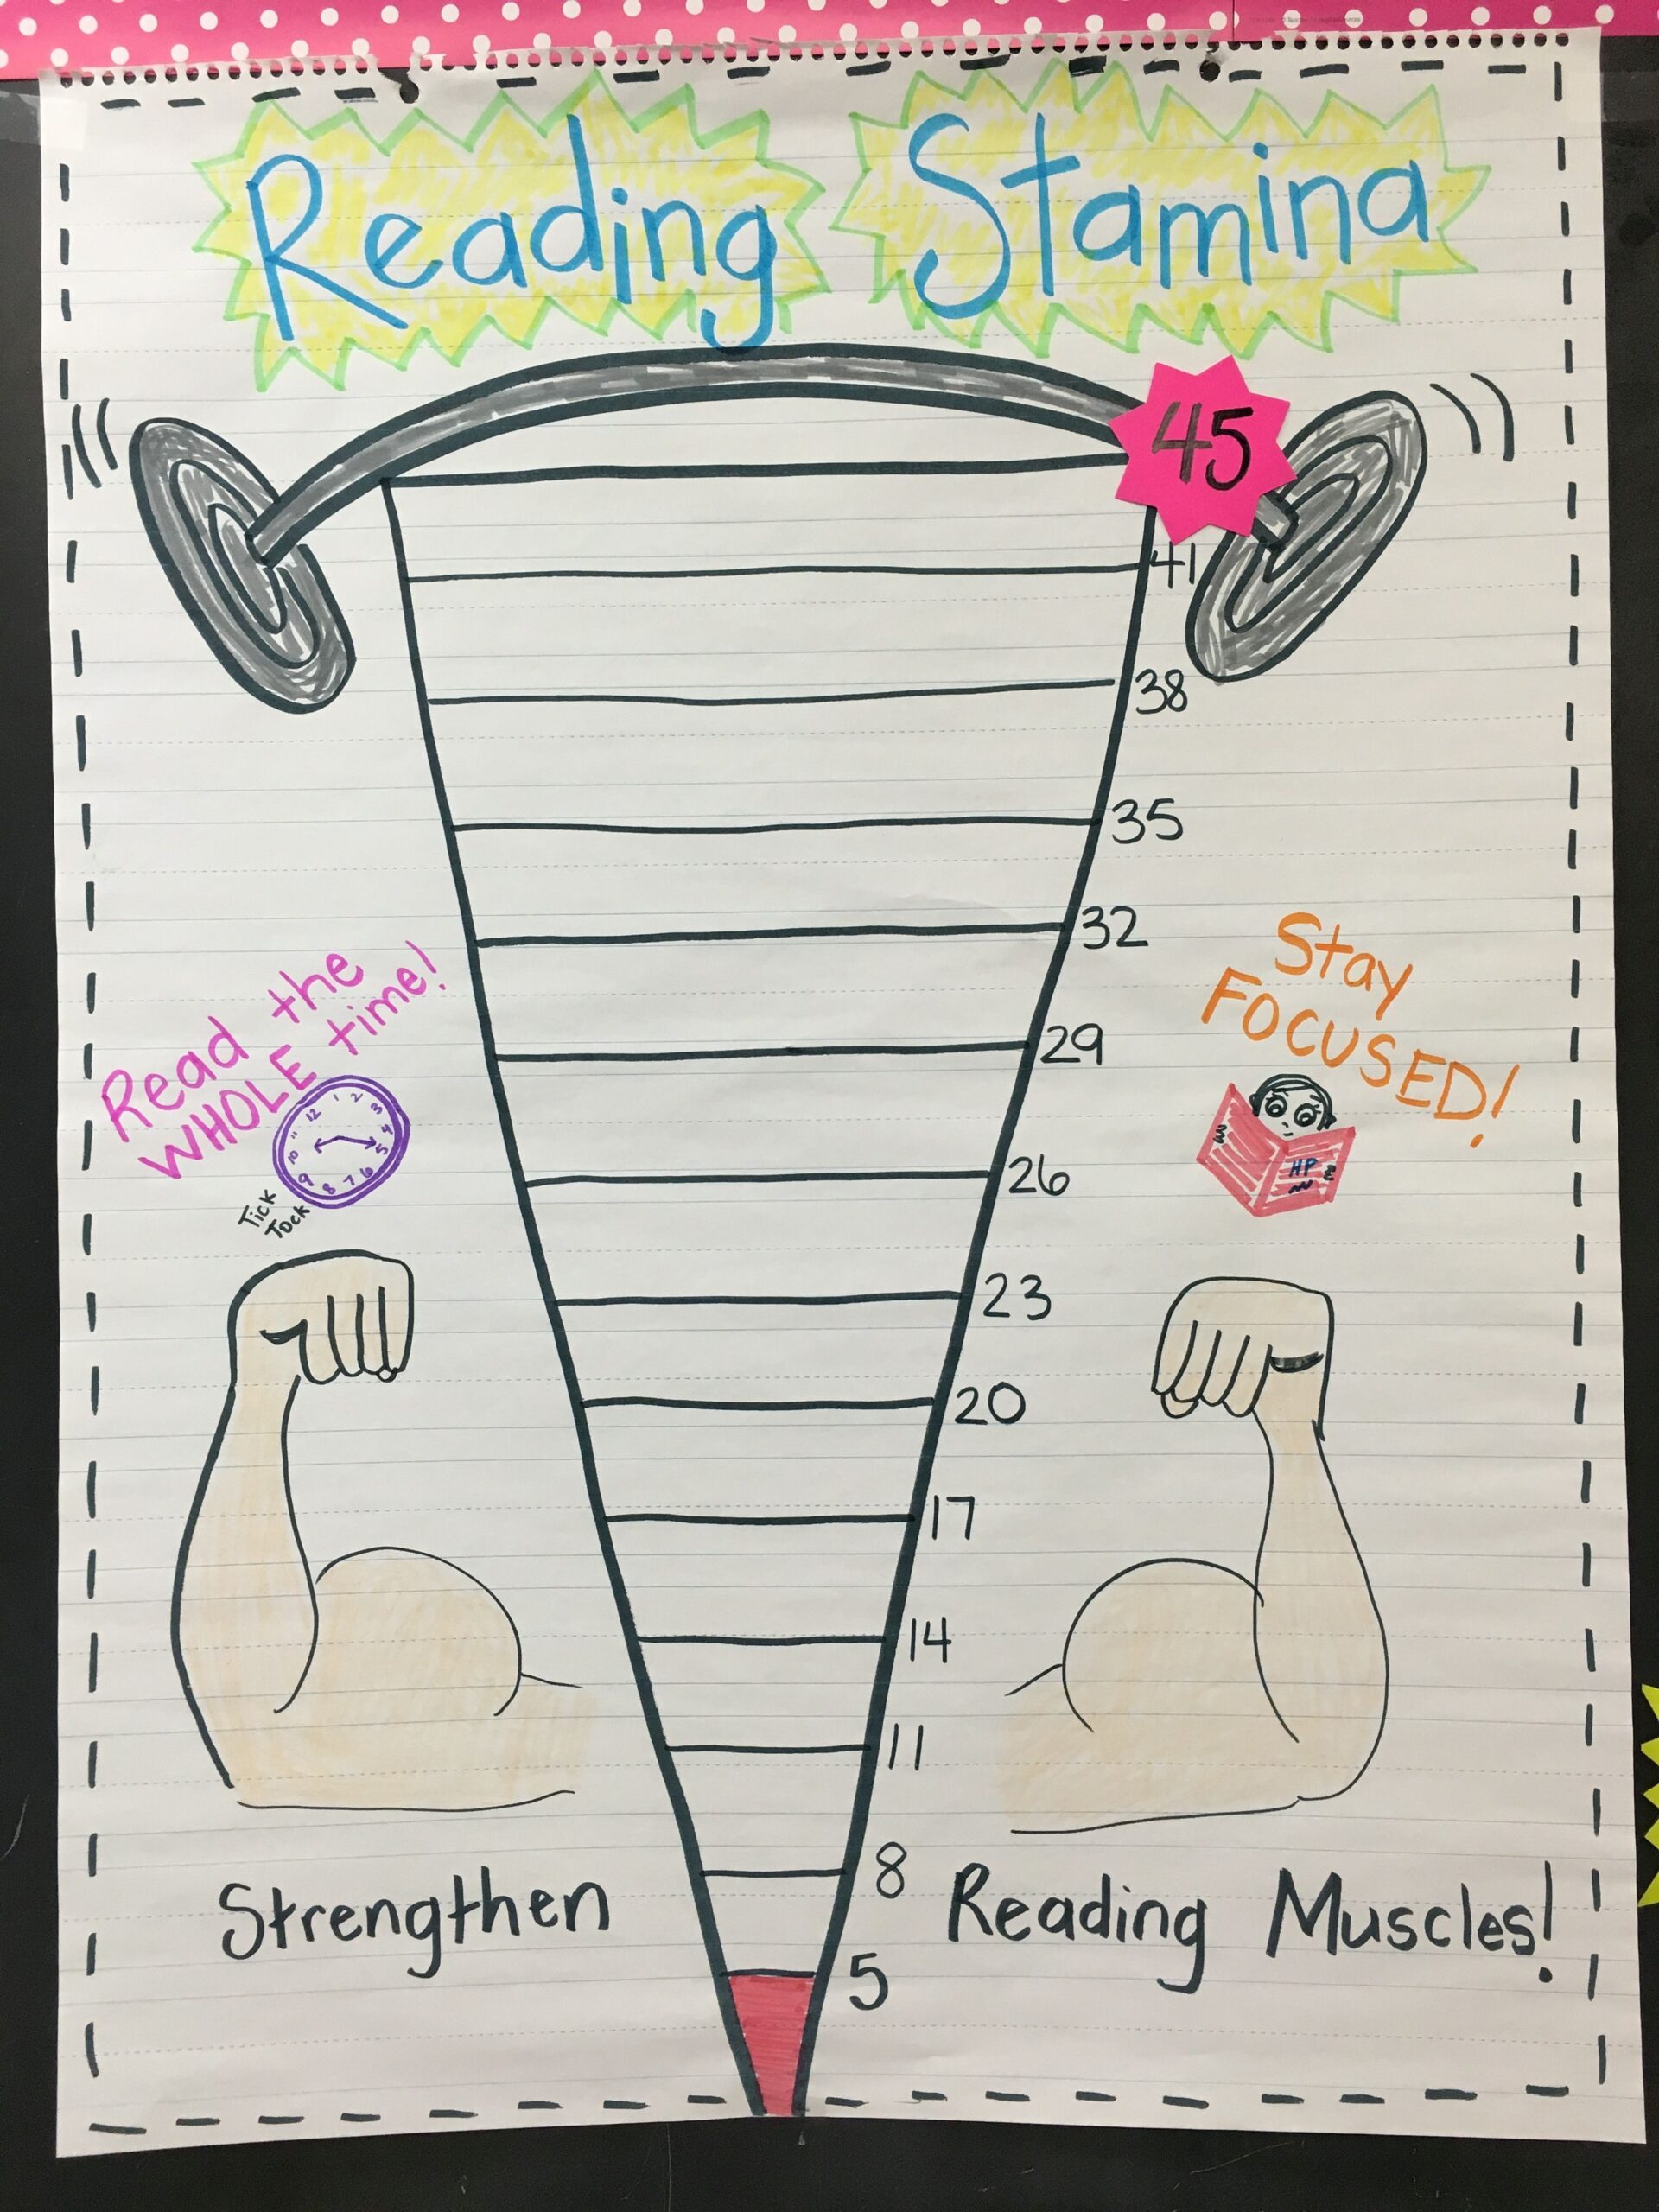 Reading Stamina
45
41
38
35
32
29
26
23
20
17
14
11
8
5
Read the
WHOLE time!
Tick
Tock
Stay
FOCUSED!
HP
Strengthen Reading Muscles!